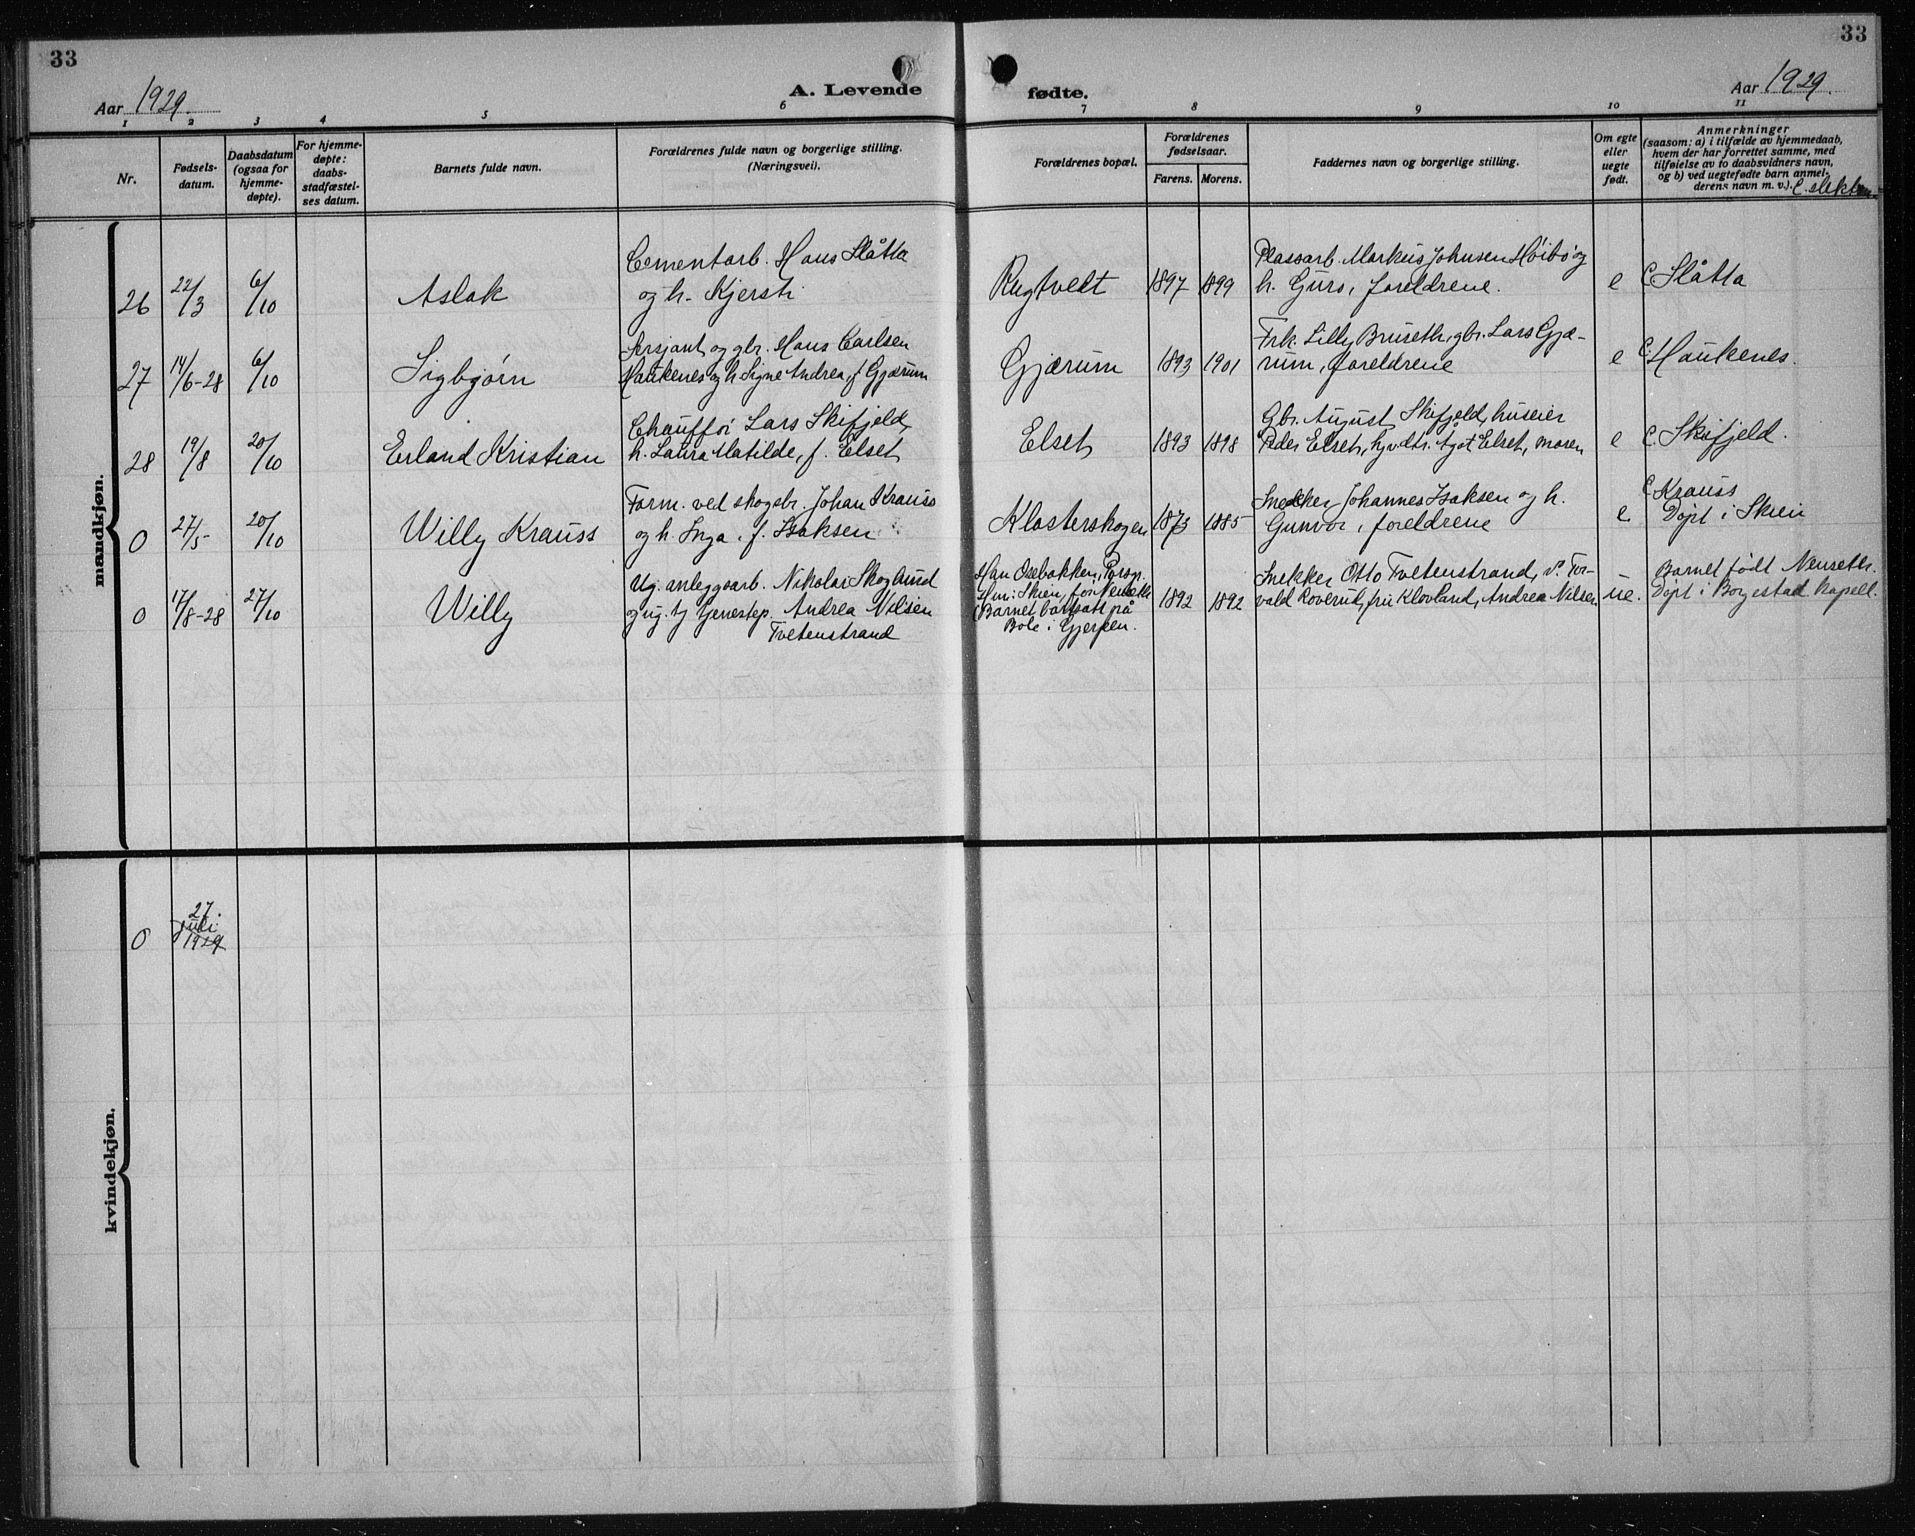 33
33
Aar 1929.
A. Levende
fødte.
Aar 1929.
1 2 3 4 5 6 7 8 9 10 11
Nr.
Fødsels-
datum.
Daabsdatum
(ogsaa for
hjemme-
døpte).
For hjemme-
døpte:
daabs-
stadfæstel-
ses datum.
Barnets fulde navn.
Forældrenes fulde navn og borgerlige stilling.
(Næringsvei).
Forældrenes bopæl.
Forældrenes
fødselsaar.
Farens. Morens.
Faddernes navn og borgerlige stilling.
Om egte
eller
uegte
født.
Anmerkninger
(saasom: a) i tilfælde av hjemmedaab,
hvem der har forrettet samme, med
tilføielse av to daabsvidners navn,
og b) ved uegtefødte barn anmel-
derens navn m. v.).
mandkjøn.
26
22/3
6/10
Aslak
Cementarb. Hans Slåtta
og h. Kjersti
Rugtvedt
1897 1899
Plassarb. Markus Johnsen Høibø og
h. Guro, foreldrene.
e
C Slåtta
27
14/6-28
6/10
Sigbjørn
Sersjant og gbr. Hans Carlsen
Haukenes og h. Signe Andrea, f. Gjærum
Gjærum
1893 1901
Frk. Lilly Bruseth, gbr. Lars Gjæ-
rum, foreldrene
e
C. Haukenes.
28
19/8
20/10
Erland Kristian
Chauffør Lars Skifjeld,
h. Laura Matilde, f. Elset
Elset
1893 1898
Gbr. August Skifjeld, huseier
Peder Elset, hvdtr. Agot Elset, moren
e
C. Skifjeld.
0
27/5-
20/10
Willy Krauss
Form. ved skogsbr. Johan Krauss
og h. Inga, f. Isaksen
Klosterskogen
1873 1885
Snekker Johannes Isaksen og h.
Gunvor, foreldrene
e
C Krauss
Døpt i Skien
0
17/8-28
27/10
Willy
Ug. anleggsarb. Nikolai Skoglund
og ug. tj Andrea Nilsen
Tvetenstrand
Han Osebakken, Porsgr.
Hun: Skien, for Neuseth
(Barnet bortsatt på
Bole i Gjerpen.
1892 1892
Snekker Otto Tvetenstrand, v. Tor-
vald Roverud, fru Klovland, Andrea Nilsen
ue.
Barnet født Neuseth.
Døpt i Borgestad kapell.
kvindekjøn.
0
27.
juli
1929